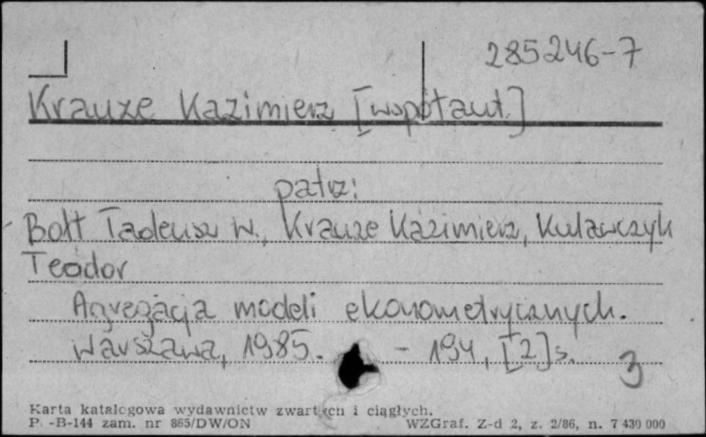 285246-7
Krauze Kazimierz [współaut.]
patrz:
Bołt Tadeusz W., Krauze Kazimierz, Kulawczyk
Teodor
Agregacja modeli ekonometrycznych.
Warszawa, 1985. - 194, [2] s. 3
Karta katalogowa wydawnictw zwartych i ciągłych.
P. -B-144 zam. nr 865/DW/ON WZGraf. Z-d 2, z. 2/86, n. 7 430 000